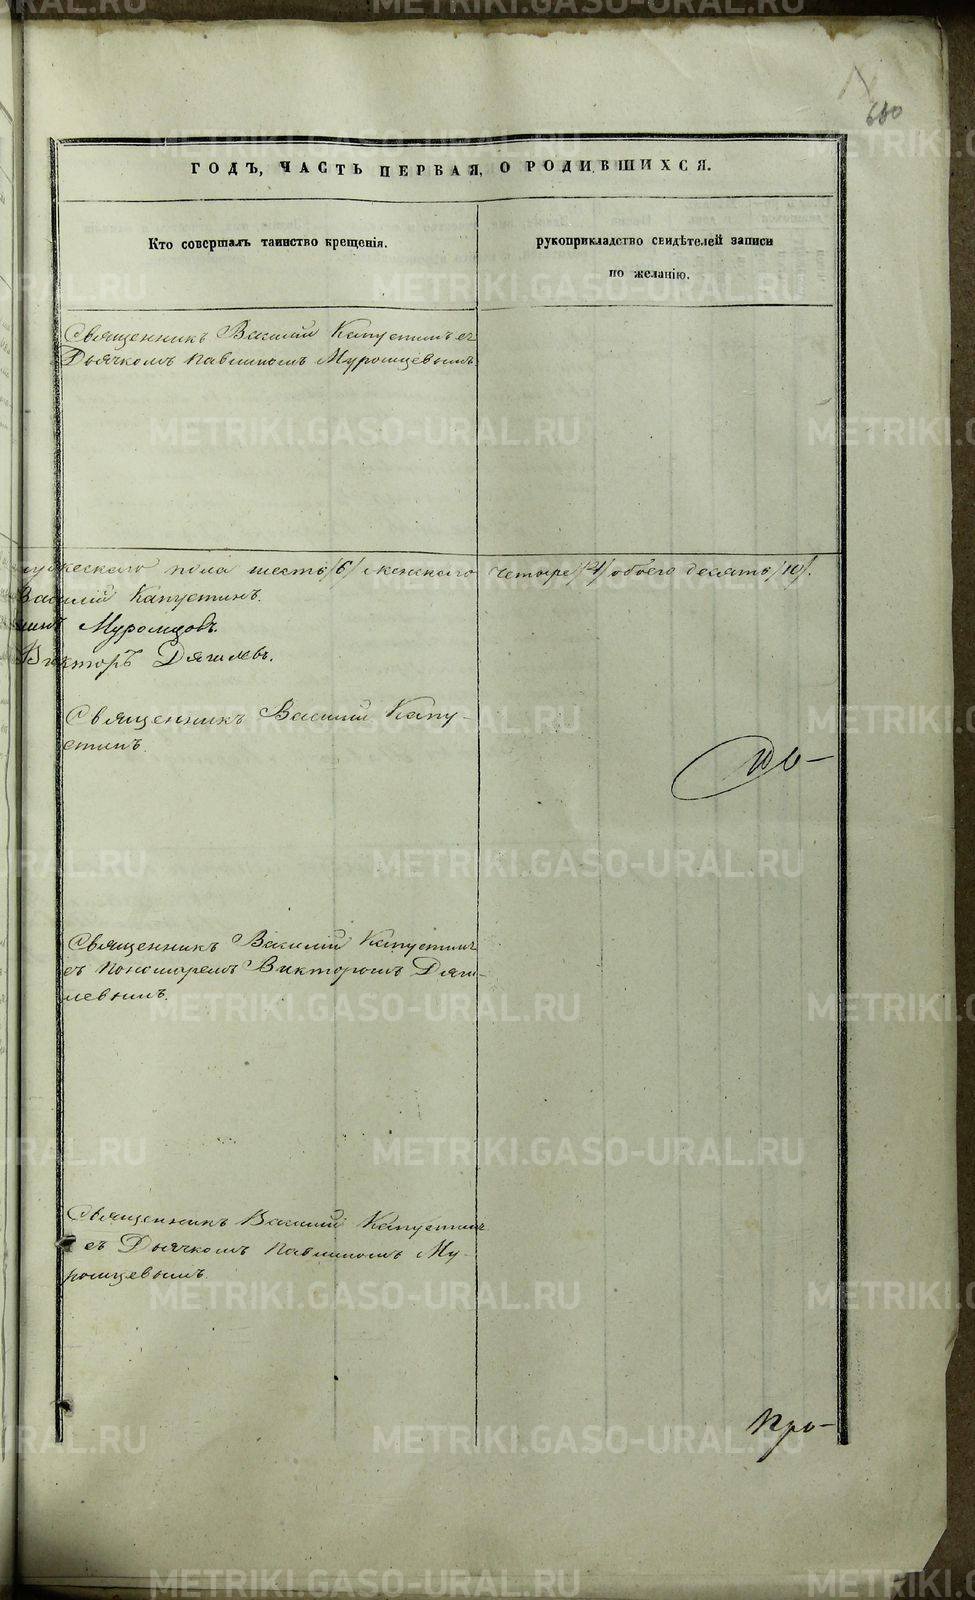 660
ГОДЪ, ЧАСТЬ ПЕРВАЯ, О РОДИВШИХСЯ.
Кто совершалъ таинство крещенія.
рукоприкладство свидѣтелей записи
по желанію.
Священникъ Василій Капустинъ съ
Дьячкомъ Павлиномъ Муромцевымъ.
мужескаго пола шесть /6/ женскаго четыре /4/ обоего десять /10/.
Василій Капустинъ.
Муромцовъ.
Викторъ Дягилевъ.
Священникъ Василій Капу-
стинъ.
Священникъ Василій Капустинъ
съ Пономаремъ Викторомъ Дяги-
левымъ.
Священникъ Василій Капустинъ
съ Дьячкомъ Павлиномъ Му-
ромцевымъ.
Про-
METRIKI.GASO-URAL.RU